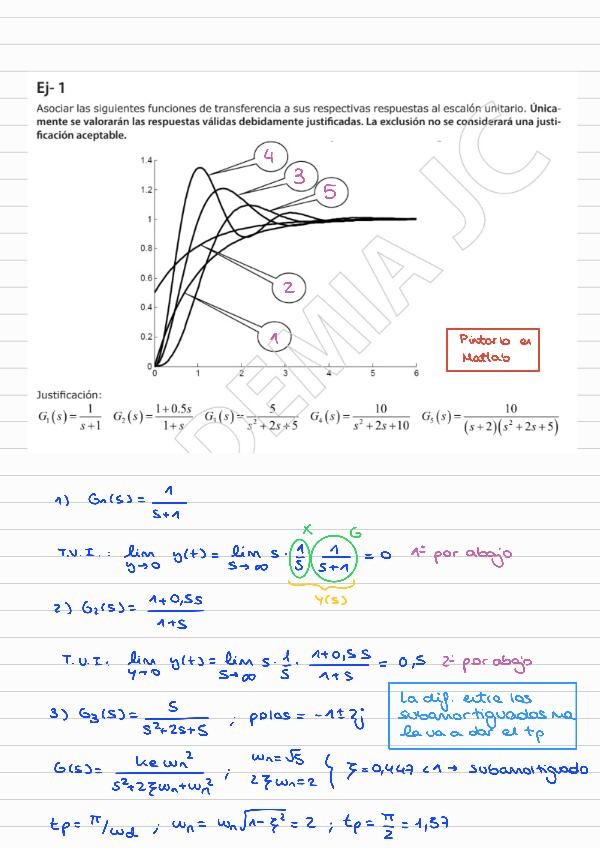 Ej- 1
Asociar las siguientes funciones de transferencia a sus respectivas respuestas al escalón unitario. Única-
mente se valorarán las respuestas válidas debidamente justificadas. La exclusión no se considerará una justi-
ficación aceptable.
1.4
4
3
5
1.2
1
0.8
0.6
2
0.4
1
0.2
0
0 1 2 3 4 5 6
Pintarlo en
Matlab
DEMIA JC
Justificación:
G₁(s)=1/(s+1) G₂(s)=(1+0.5s)/(1+s) G₃(s)=5/(s²+2s+5) G₄(s)=10/(s²+2s+10) G₅(s)=10/((s+2)(s²+2s+5))
1) G₁(s) = 1/(s+1)
X G
T.V.I.: lim y(t) = lim s · 1/s · 1/(s+1) = 0 1ª por abajo
y→0 s→∞
Y(s)
2) G₂(s) = (1+0,5s)/(1+s)
T.V.I. lim y(t) = lim s · 1/s · (1+0,5s)/(1+s) = 0,5 2ª por abajo
y→0 s→∞
La dif. entre los
subamortiguados na
la va a dar el tp
3) G₃(s) = 5/(s²+2s+5) ; polos = -1±2j
G(s) = ke wn²/(s²+2ξwn+wn²) ; wn=√5 2ξwn=2 { ξ=0,447 <1 → subamortiguado
tp = π/wd ; wn = wn√(1-ξ²) = 2 ; tp = π/2 = 1,57